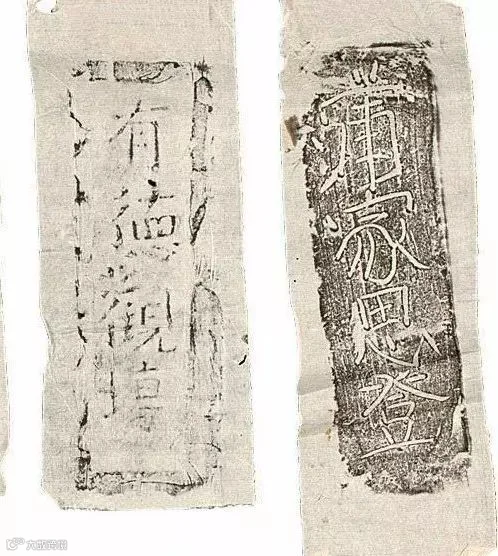 有德觀
蒲家思登